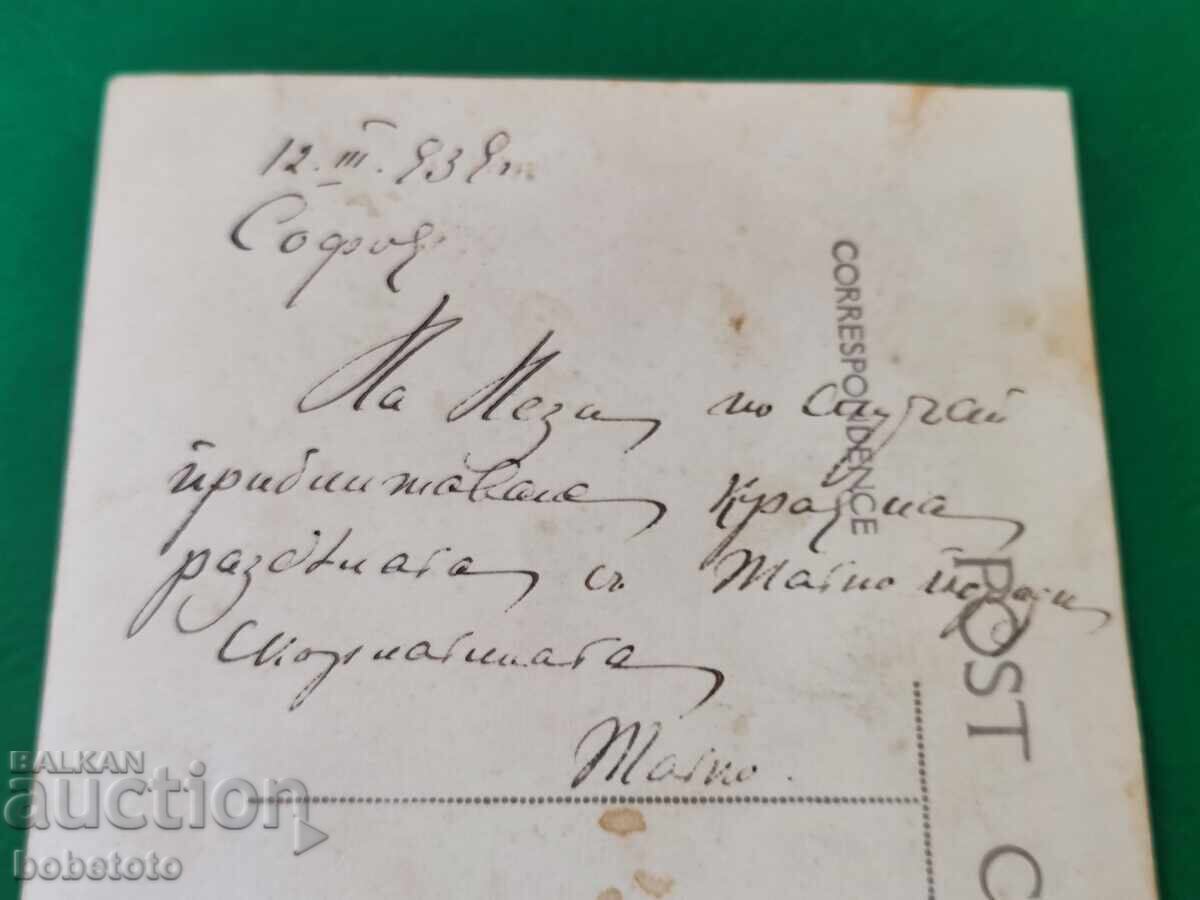 12.III.939
София
На Неза по случай
приближаване края на
раздѣлата съ Татко поради
Татко.
CORRESPONDENCE
POST C
BALKAN
auction
bobetoto